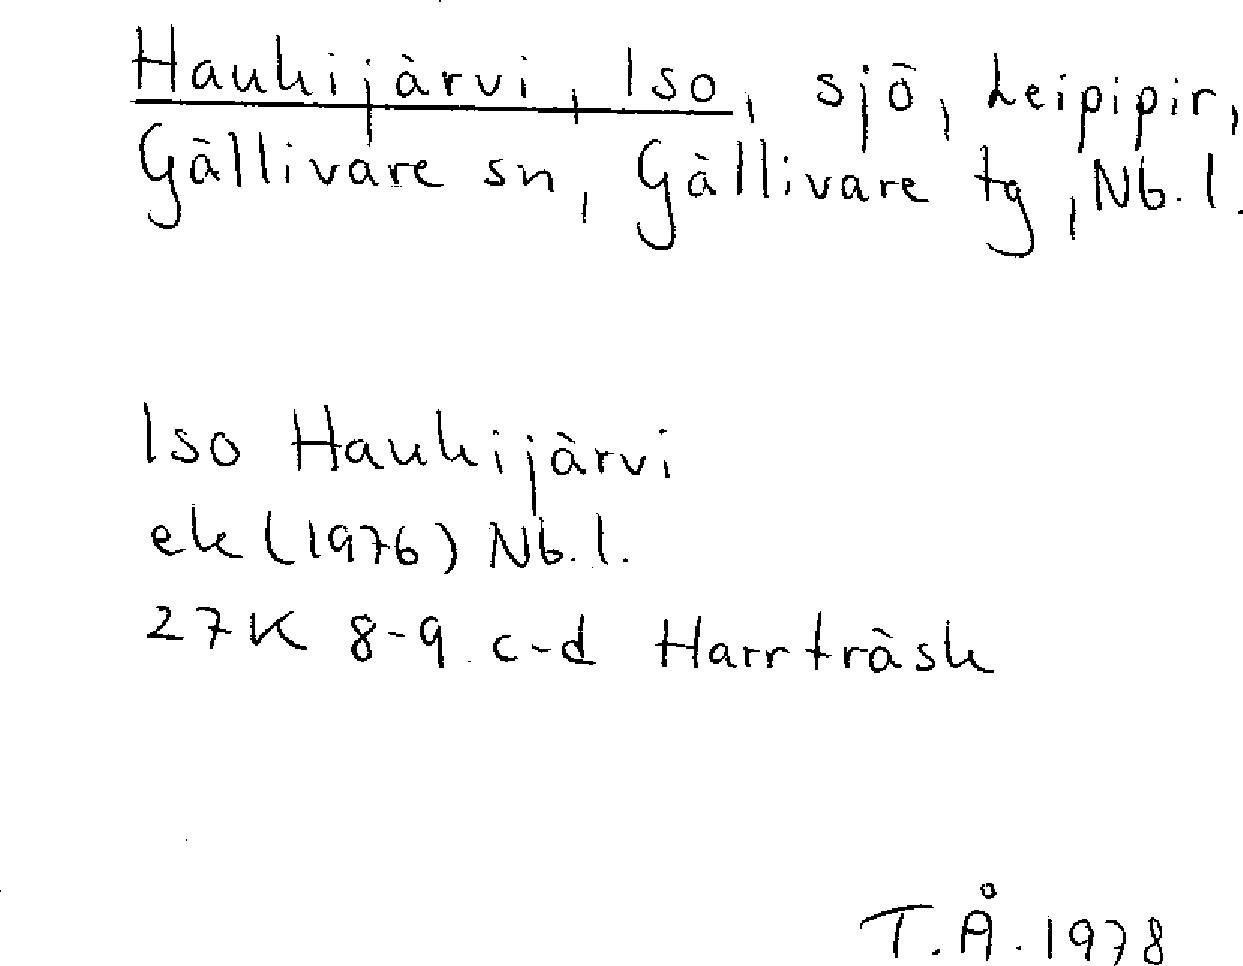 Haukijärvi, Iso, sjö, Leipipir,
Gällivare sn, Gällivare tg, Nb. l.
Iso Haukijärvi
ek (1976) Nb. l.
27K 8-9 c-d Harrträsk
T.Å. 1978